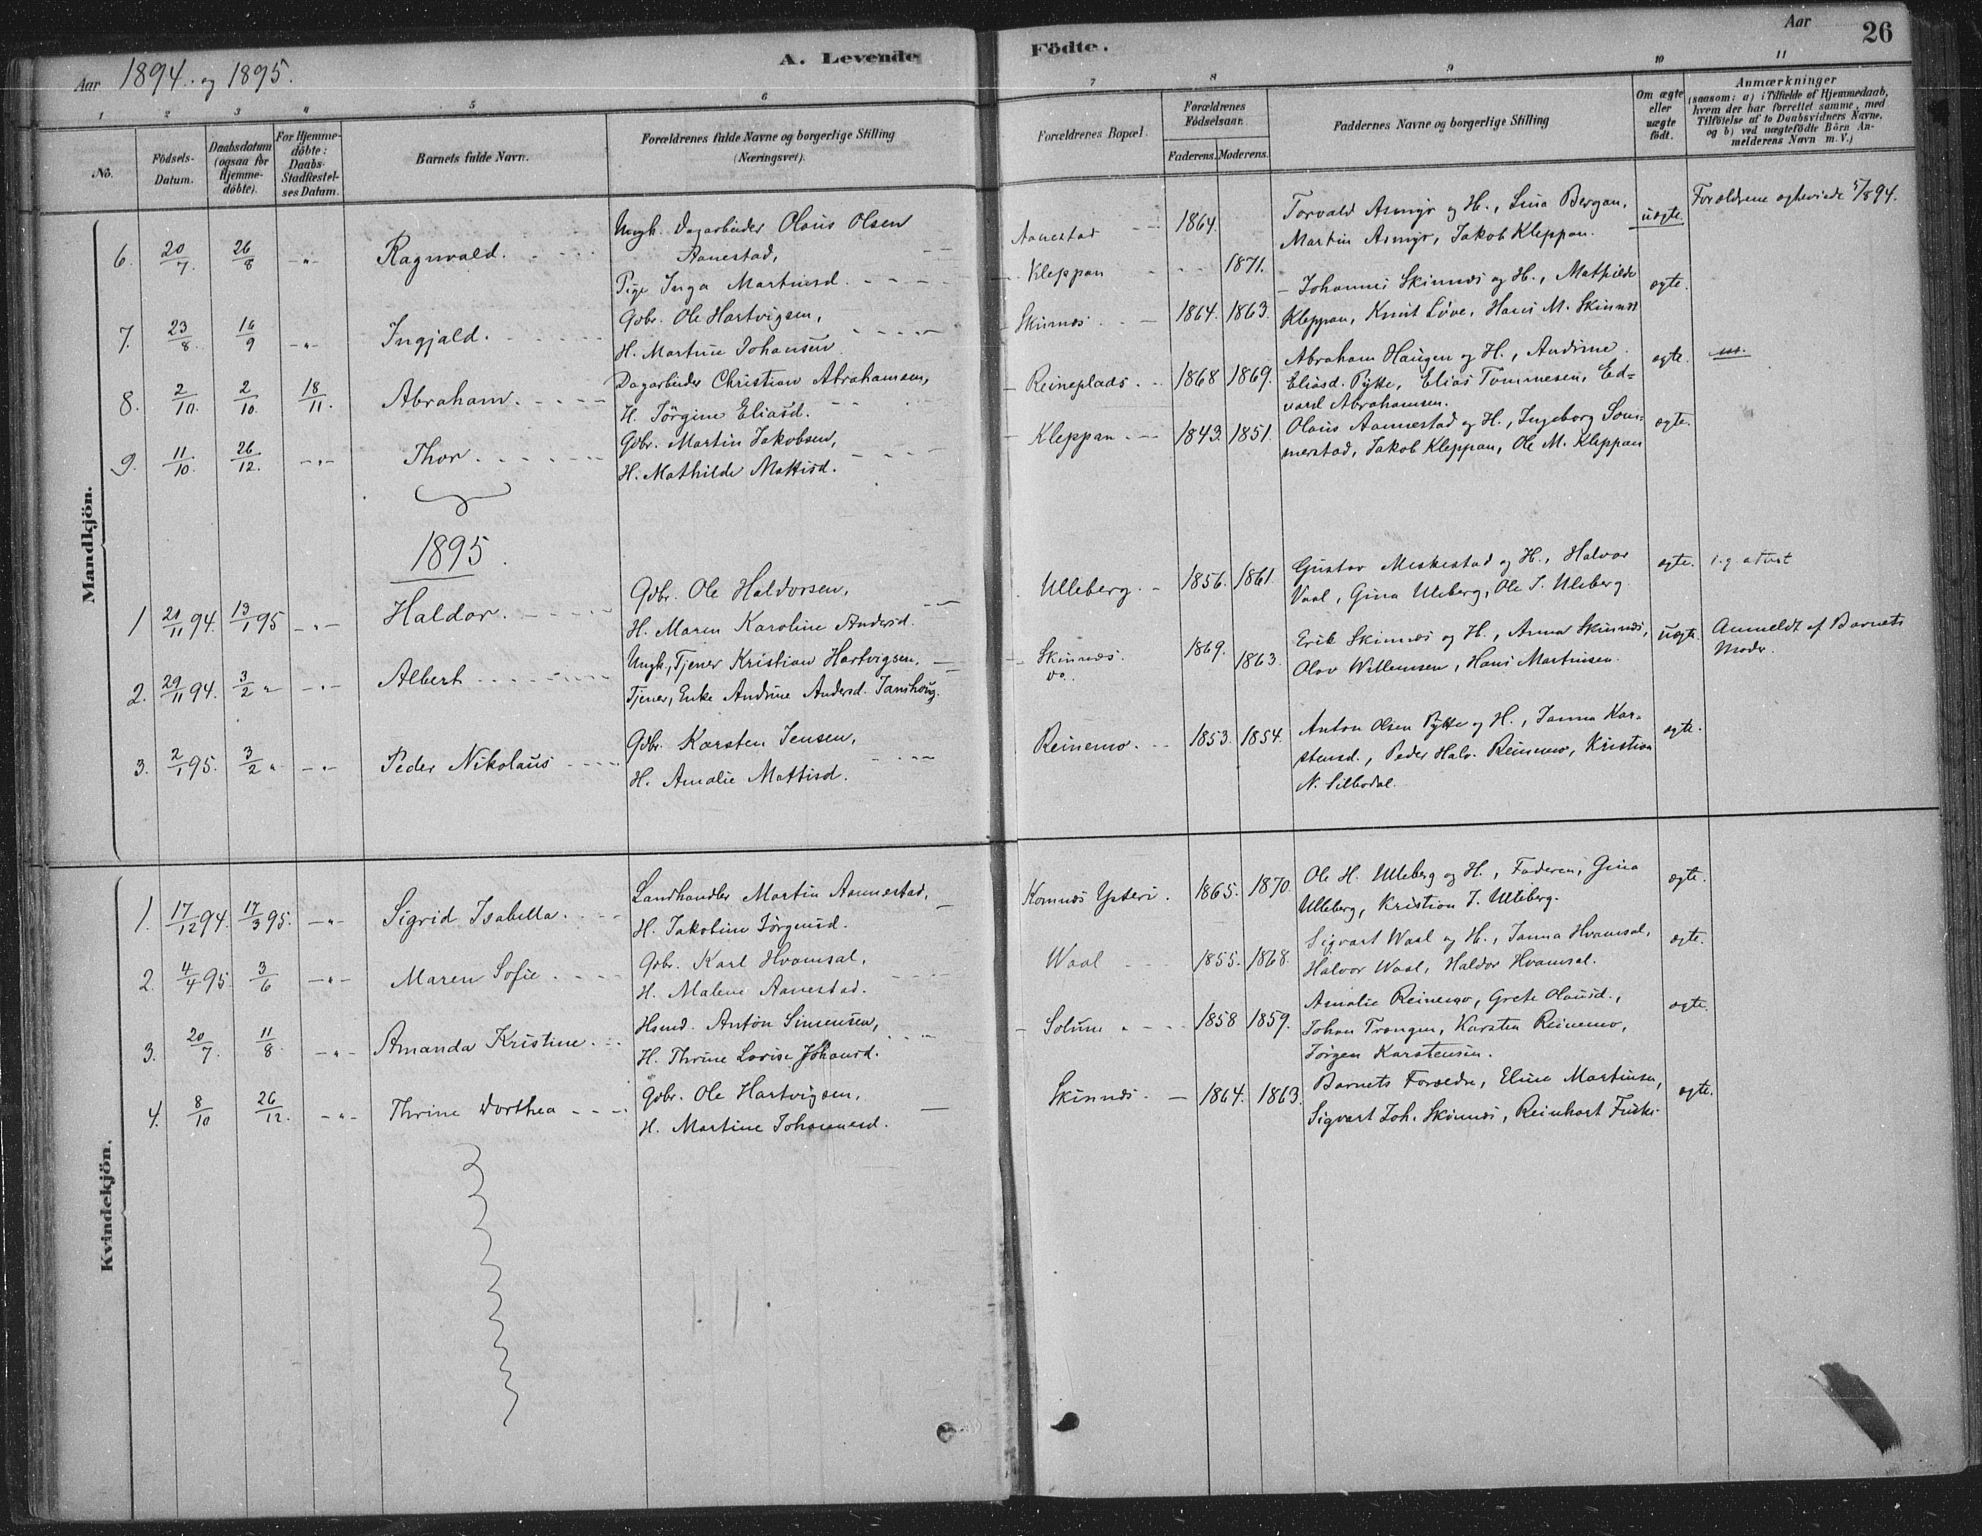 Aar 1894. og 1895.
A. Levende Födte.
Aar
26
1 2 3 4 5 6 7 8 9 10 11
No.
Födsels-Datum.
Daabsdatum (ogsaa for Hjemmedöbte).
For Hjemmedöbte: Daabs-Stadfæstelses Datum.
Barnets fulde Navn.
Forældrenes fulde Navne og borgerlige Stilling
(Næringsvei).
Forældrenes Bopæl.
Forældrenes Födselsaar.
Faderens. Moderens.
Faddernes Navne og borgerlige Stilling
Om ægte eller uægte födt.
Anmærkninger
(saasom: a) i Tilfælde af Hjemmedaab,
hvem der har forrettet samme, med
Tilföielse af to Daabsvidners Navne,
og b) ved uægtefödte Börn Anmelderens Navn m. V.)
Mandkjön.
6. 20/7. 26/8 -"- Ragnvald.
Ungk. Dagarbeider Olaus Olsen
Aanestad,
Pige Inga Martinsd.
Aanestad 1864.
Kleppan 1871.
Torvald Asmyr og H., Lina Bergan,
Martin Asmyr, Jakob Kleppan.
uægte.
Forældrene ægteviede 5/8 94.
7. 23/8. 16/9 -"- Ingjald.
Gbr. Ole Hartvigsen,
H. Martine Johansen
Skinnes. 1864. 1863.
Johannes Skinnes og H., Mathilde
Kleppan, Knut Löve, Hans M. Skinnes
ægte.
8. 2/10. 2/10. 18/11. Abraham.
Dagarbeider Christian Abrahamsen,
H. Jörgine Eliasd.
Reineplads. 1868 1869.
Abraham Haugen og H., Andrine
Eliasd. Pytte, Elias Tommesen, Ed-
vard Abrahamsen.
ægte.
9. 11/10. 26/12. -"- Thor.
Gbr. Martin Jakobsen,
H. Mathilde Mattisd.
Kleppan 1843. 1851.
Olaus Aannestad og H., Ingeborg Som-
merstad, Jakob Kleppan, Ole M. Kleppan
ægte.
1895.
1 20/11 94. 13/1 95 -"- Haldor.
Gbr. Ole Haldorsen,
H. Maren Karoline Andersd.
Ulleberg. 1856. 1861.
Gustav Meskestad og H., Halvor
Vaal, Gina Uleberg, Ole J. Uleberg.
ægte.
2. 29/11 94. 3/2 " -"- Albert
Ungk., Tjener Kristian Hartvigsen,
Tjener, Enke Andrine Andersd. Janshoug.
Skinnes. 1869.
Do. 1863.
Erik Skinnes og H., Anna Skinnes,
Olav Willemsen, Hans Martinsen.
uægte.
Anmeldt af Barnets
Moder.
3. 2/1 95. 3/2 " -"- Peder Nikolaus
Gbr. Karsten Jensen,
H. Amalie Mattisd.
Reinemo. 1853. 1854.
Anton Olsen Pytte og H., Janna Kar-
stensd., Peder Halv. Reinemo, Kristian
N. Silbodal.
ægte.
Kvindekjön.
1. 17/12 94. 17/3 95. -"- Sigrid Isabella.
Landhandler Martin Aannestad,
H. Jakobine Jörgensd.
Komnes Ysteri. 1865. 1870.
Ole H. Ulleberg og H., Faderen, Gina
Ulleberg, Kristian J. Ulleberg.
ægte.
2. 4/4 95. 3/6 -"- Maren Sofie
Gbr. Karl Hvamsal,
H. Malene Aanestad.
Waal 1855. 1868.
Sigvart Waal og H., Janna Hvamsal,
Halvor Waal, Haldor Hvamsal.
ægte.
3. 20/7. 11/8 -"- Amanda Kristine
Hsmd. Anton Simensen,
H. Thrine Lovise Johansd.
Solum 1858 1859.
Amalie Reinemo, Grete Olausd.,
Johan Trangen, Karsten Reinemo,
Jörgen Karstensen.
ægte.
4. 8/10 26/12. -"- Thrine Dorthea
Gbr. Ole Hartvigsen,
H. Martine Johannesd.
Skinnes 1864. 1863.
Barnets Forældre, Eline Martinsen,
Sigvart Joh. Skinnes, Reinhart
ægte.